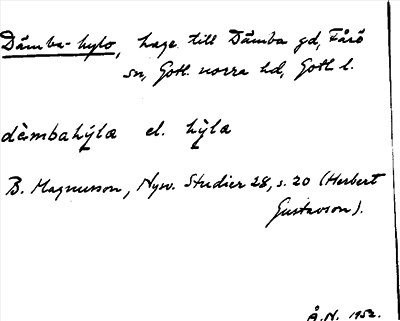 Dämba-hylo, hage till Dämba gd, Fårö
sn, Gotl. norra hd, Gotl. l.
dèmbahýlæ el. hỳlæ
B. Magnusson, Nysv. Studier 28, s. 20 (Herbert
Gustavson).
Å.N. 1952.